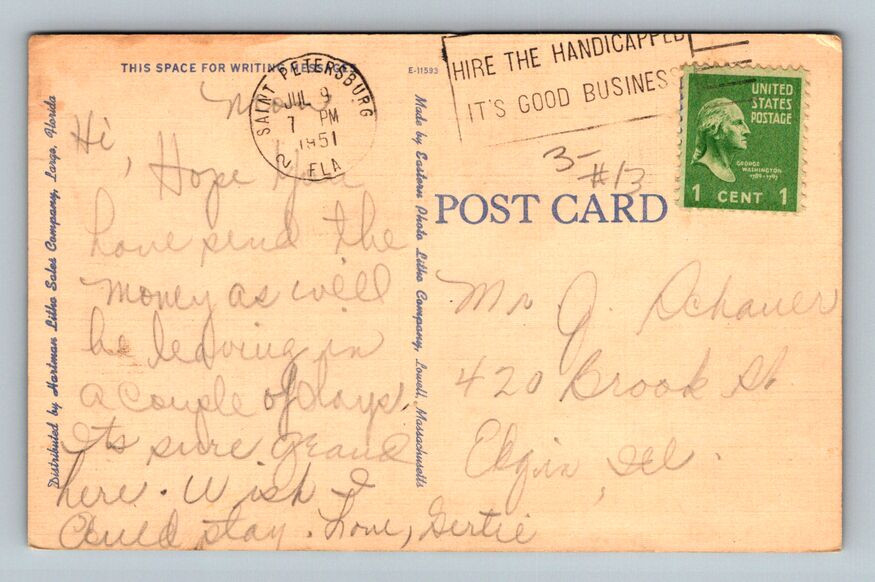 THIS SPACE FOR WRITING MESSAGES
E-11593
SAINT PETERSBURG
JUL 9
7 PM
1951
2 FLA
HIRE THE HANDICAPPED
IT'S GOOD BUSINESS
UNITED
STATES
POSTAGE
GEORGE
WASHINGTON
1789-1797
1 CENT 1
3-
#13
POST CARD
Distributed by Hartman Litho Sales Company, Largo, Florida
Made by Eastern Photo Litho Company, Lowell, Massachusetts
Hi,
Hope you
have send the
money as will
be leaving in
a couple of days.
Its sure grand
here. Wish I
could stay. Love, Gertie
Mr J. Schauer
420 Brook St
Elgin, Ill.